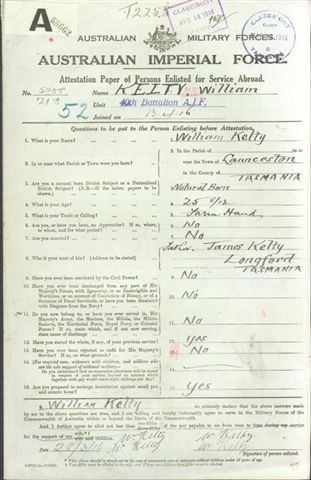 A
CLAREMONT
APR 14 1916
CLAREMONT
1916
TASMANIA
AUSTRALIAN MILITARY FORCES.
AUSTRALIAN IMPERIAL FORCE.
Attestation Paper of Persons Enlisted for Service Abroad.
No. Name KELTY William
52 Unit 40th Battalion A.I.F.
Joined on
Questions to be put to the Person Enlisting before Attestation.
1. What is your Name? 1. William Kelty
2. In or near what Parish or Town were you born? 2. In the Parish of in or
near the Town of Launceston
in the County of TASMANIA
3. Are you a natural born British Subject or a Naturalised British Subject? (N.B.—If the latter, papers to be shown.) 3. Natural Born
4. What is your Age? 4. 25
5. What is your Trade or Calling? 5. Farm Hand
6. Are you, or have you been, an Apprentice? If so, where, to whom, and for what period? 6. No
7. Are you married? 7. No
8. Who is your next of kin? (Address to be stated) 8. Father James Kelty
Longford
TASMANIA
9. Have you ever been convicted by the Civil Power? 9. No
10. Have you ever been discharged from any part of His Majesty's Forces, with Ignominy, or as Incorrigible and Worthless, or on account of Conviction of Felony, or of a Sentence of Penal Servitude, or have you been dismissed with Disgrace from the Navy? 10. No
11. Do you now belong to, or have you ever served in, His Majesty's Army, the Marines, the Militia, the Militia Reserve, the Territorial Force, Royal Navy, or Colonial Forces? If so, state which, and if not now serving, state cause of discharge 11. No
12. Have you stated the whole, if any, of your previous service? 12. Yes
13. Have you ever been rejected as unfit for His Majesty's Service? If so, on what grounds? 13. No
15. Are you prepared to undergo inoculation against small pox and enteric fever? 15. Yes
I, William Kelty do solemnly declare that the above answers made
by me to the above questions are true, and I am willing and hereby voluntarily agree to serve in the Military Forces of the
Commonwealth of Australia within or beyond the limits of the Commonwealth.
And I further agree to allot not less than of the pay payable to me from time to time during my service
for the support of my W. Kelty W. Kelty
Date W. Kelty W. Kelty
Signature of person enlisted.